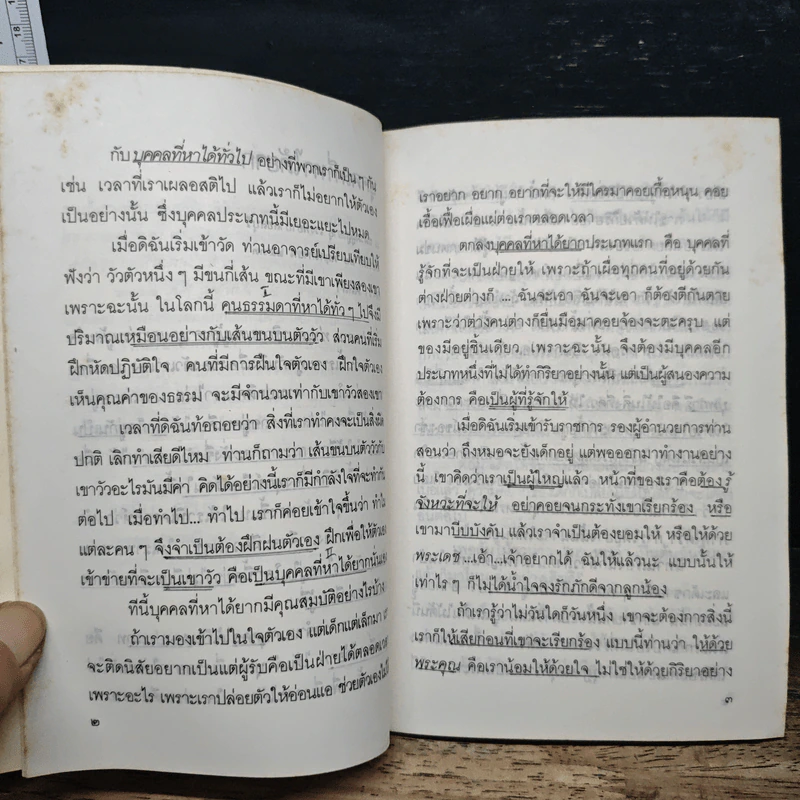 กับบุคคลที่หาได้ทั่วไป อย่างที่พวกเราก็เป็นๆ กัน
เช่น เวลาที่เราเผลอสติไป แล้วเราก็ไม่อยากให้ตัวเอง
เป็นอย่างนั้น ซึ่งบุคคลประเภทนี้มีเยอะแยะไปหมด
เมื่อดิฉันเริ่มเข้าวัด ท่านอาจารย์เปรียบเทียบให้
ฟังว่า วัวตัวหนึ่งๆ มีขนกี่เส้น ขณะที่มีเขาเพียงสองเขา
เพราะฉะนั้น ในโลกนี้ คนธรรมดาที่หาได้ทั่วๆ ไปจึงมี
ปริมาณเหมือนอย่างกับเส้นขนบนตัววัว ส่วนคนที่เริ่ม
ฝึกหัดปฏิบัติใจ คนที่มีการฝืนใจตัวเอง ฝึกใจตัวเอง
เห็นคุณค่าของธรรม จะมีจำนวนเท่ากับเขาวัวสองเขา
เวลาที่ดิฉันท้อถอยว่า สิ่งที่เราทำคงจะเป็นสิ่งผิด
ปกติ เลิกทำเสียดีไหม ท่านก็ถามว่า เส้นขนบนตัววัวกับ
เขาวัวอะไรมันมีค่า คิดได้อย่างนี้เราก็มีกำลังใจที่จะทำ
ต่อไป เมื่อทำไป... ทำไป เราก็ค่อยเข้าใจขึ้นว่า ทำไม
แต่ละคนๆ จึงจำเป็นต้องฝึกฝนตัวเอง ฝึกเพื่อให้ตัวเอง
เข้าข่ายที่จะเป็นเขาวัว คือเป็นบุคคลที่หาได้ยากนั่นเอง
ทีนี้บุคคลที่หาได้ยากมีคุณสมบัติอย่างไรบ้าง
ถ้าเรามองเข้าไปในใจตัวเอง แต่เด็กแต่เล็กมา
จะติดนิสัยอยากเป็นแต่ผู้รับคือเป็นฝ่ายได้ตลอดเวลา
เพราะอะไร เพราะเราปล่อยตัวให้อ่อนแอ ช่วยตัวเอง
๒
เราอยาก อยาก อยากที่จะให้มีใครมาคอยเกื้อหนุน คอย
เอื้อเฟื้อเผื่อแผ่ต่อเราตลอดเวลา
ตกลงบุคคลที่หาได้ยากประเภทแรก คือ บุคคลที่
รู้จักที่จะเป็นฝ่ายให้ เพราะถ้าเผื่อทุกคนที่อยู่ด้วยกัน
ต่างฝ่ายต่างก็ ... ฉันจะเอา ฉันจะเอา ก็ต้องตีกันตาย
เพราะว่าต่างคนต่างก็ยื่นมือมาคอยจ้องจะตะครุบ แต่
ของมีอยู่ชิ้นเดียว เพราะฉะนั้น จึงต้องมีบุคคลอีก
ประเภทหนึ่งที่ไม่ได้ทำกิริยาอย่างนั้น แต่เป็นผู้สนองความ
ต้องการ คือเป็นผู้ที่รู้จักให้
เมื่อดิฉันเริ่มเข้ารับราชการ รองผู้อำนวยการท่าน
สอนว่า ถึงหมอจะยังเด็กอยู่ แต่พอออกมาทำงานอย่าง
นี้ เขาคิดว่าเราเป็นผู้ใหญ่แล้ว หน้าที่ของเราคือต้องรู้
จังหวะที่จะให้ อย่าคอยจนกระทั่งเขาเรียกร้อง หรือ
เขามาบีบบังคับ แล้วเราจำเป็นต้องยอมให้ หรือให้ด้วย
พระเดช ...เอ้า...เจ้าอยากได้ ฉันให้แล้วนะ แบบนั้นให้
เท่าไรๆ ก็ไม่ได้น้ำใจจงรักภักดีจากลูกน้อง
ถ้าเรารู้ว่าไม่วันใดก็วันหนึ่ง เขาจะต้องการสิ่งนี้
เราก็ให้เสียก่อนที่เขาจะเรียกร้อง แบบนี้ท่านว่า ให้ด้วย
พระคุณ คือเราน้อมให้ด้วยใจ ไม่ใช่ให้ด้วยกิริยาอย่าง
๓